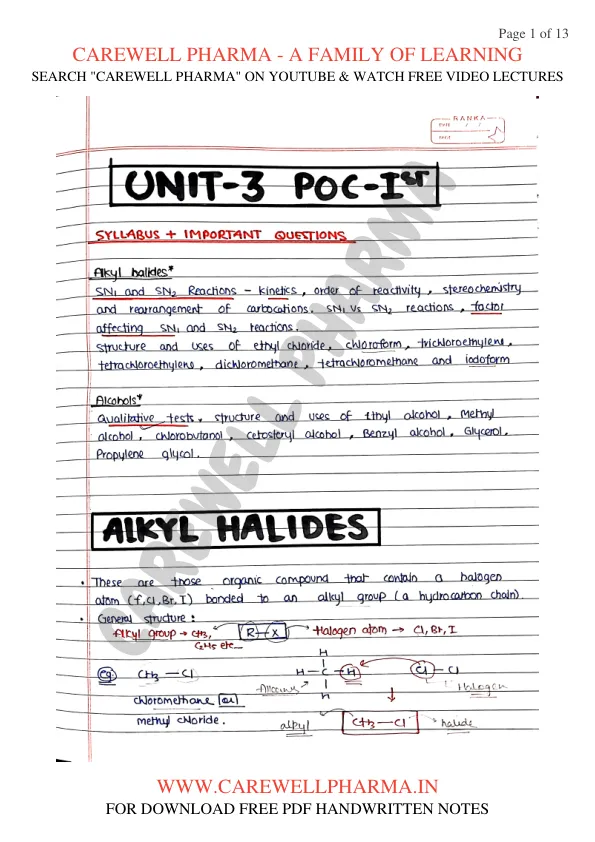 Page 1 of 13
CAREWELL PHARMA - A FAMILY OF LEARNING
SEARCH "CAREWELL PHARMA" ON YOUTUBE & WATCH FREE VIDEO LECTURES
RANKA
DATE / /
PAGE
UNIT-3 POC-Ist
SYLLABUS + IMPORTANT QUESTIONS
Alkyl halides*
SN1 and SN2 Reactions - kinetics, order of reactivity, stereochemistry
and rearrangement of carbocations. SN1 Vs SN2 reactions, factor
affecting SN1 and SN2 reactions.
structure and uses of ethyl chloride, chloroform, trichloroethylene,
tetrachloroethylene, dichloromethane, tetrachloromethane and iodoform
Alcohols*
Qualitative tests, structure and uses of Ethyl alcohol, Methyl
alcohol, chlorobutanol, cetosteryl alcohol, Benzyl alcohol, Glycerol,
Propylene glycol.
ALKYL HALIDES
• These are those organic compound that contain a halogen
atom (f, Cl, Br, I) bonded to an alkyl group (a hydrocarbon chain).
• General structure:
Alkyl group → CH3, R-X Halogen atom → Cl, Br, I
C2H5 etc...
H
eg CH3 — Cl H — C — H Cl — Cl
H
Halogen
chloromethane or
methyl chloride.
alkyl CH3 — Cl halide
CAREWELL PHARMA
WWW.CAREWELLPHARMA.IN
FOR DOWNLOAD FREE PDF HANDWRITTEN NOTES